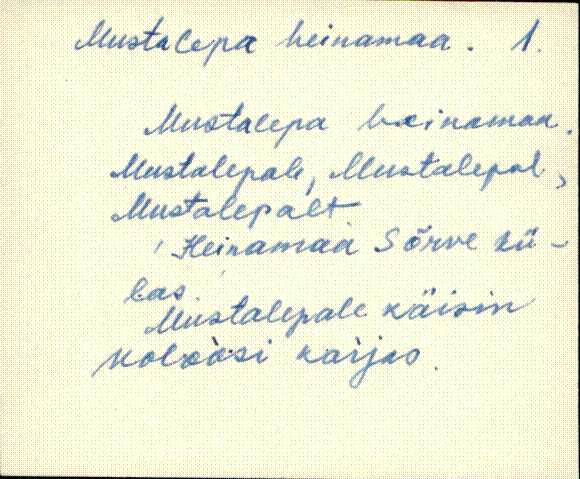 Mustalepa heinamaa. 1.
Mustalepa hæinamaa.
Mustalepale, Mustalepal,
Mustalepalt
Heinamaa Sõrve kü-
las.
Mustalepale käisin
kolxoòsi kaŕjas.